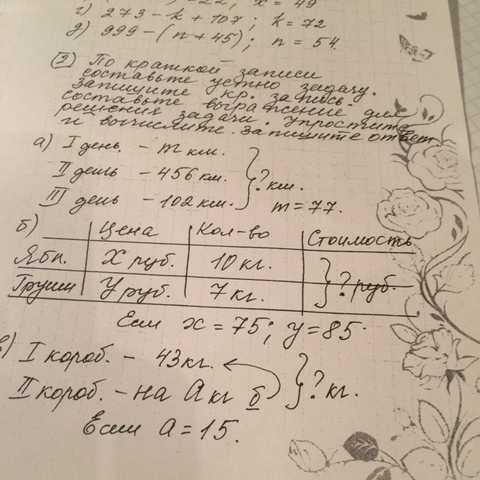 -22; x = 49
г) 273 - k + 107; k = 72
д) 999 - (n + 45); n = 54.
2 По краткой записи
составьте устно задачу.
Запишите кр. запись.
составьте выражение для
решения задачи. Упростите
и вычислите. Запишите ответ
а) I день. - m км.
II день - 456 км.
III день - 102 км.
? км.
m = 77.
б) Цена Кол-во Стоимость
Ябл. X руб. 10 кг.
Груши У руб. 7 кг.
? руб.
Если x = 75; y = 85.
в) I короб. - 43 кг.
II короб. - на A кг б
? кг.
Если a = 15.